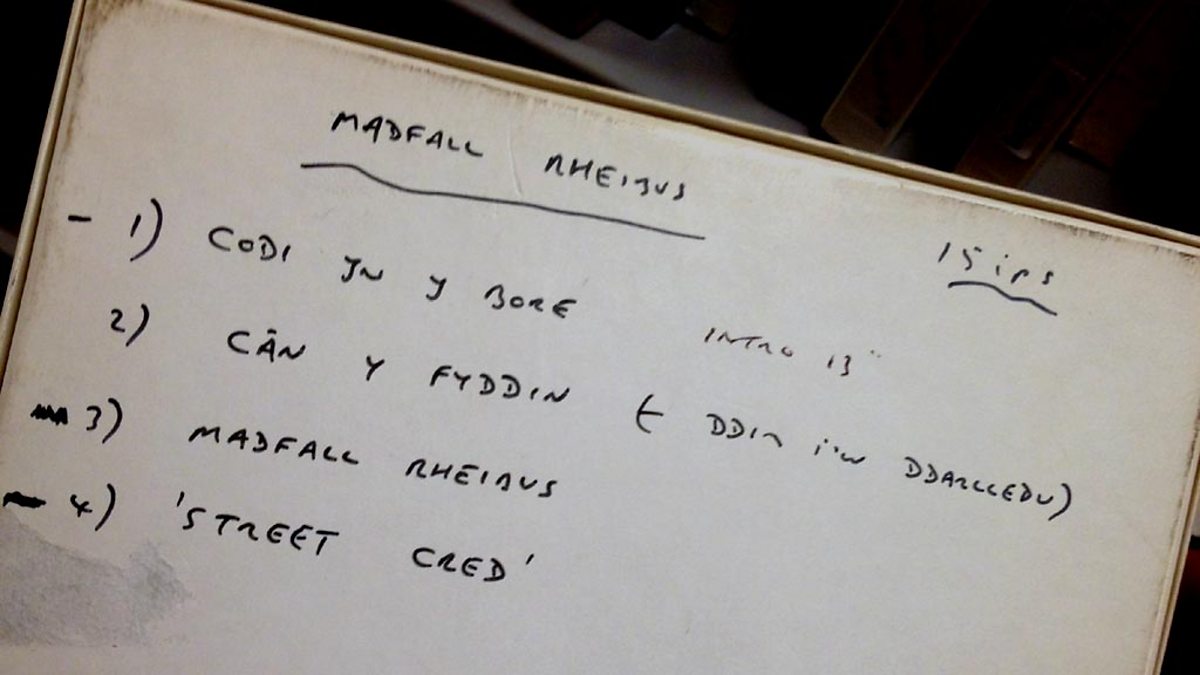 MADFALL RHEIBUS
15 ips
- 1) CODI YN Y BORE INTRO 13"
2) CÂN Y FYDDIN ( DDIM i'w DDARLLEDU)
3) MADFALL RHEIBUS
- 4) 'STREET CRED'